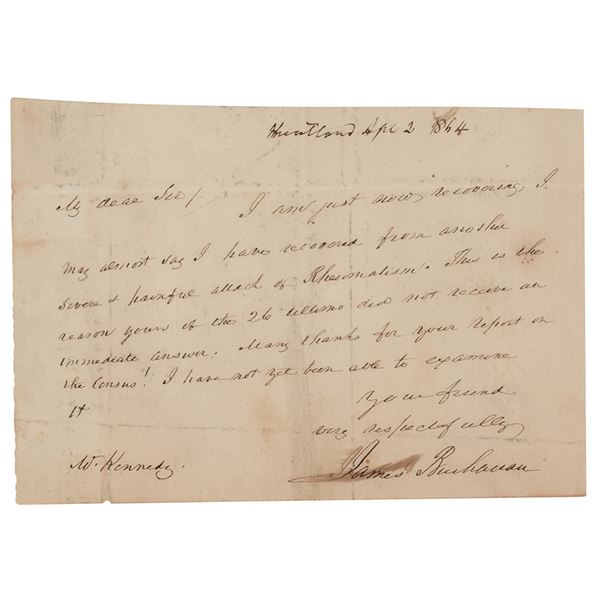 Wheatland Apl 2 1864
My dear Sir/ I am just now recovering, I
may almost say I have recovered from another
severe & painful attack of Rheumatism. This is the
reason yours of the 26 ultimo did not receive an
immediate answer. Many thanks for your report on
the Census! I have not yet been able to examine
it
Your friend
very respectfully
James Buchanan
Mr. Kennedy.